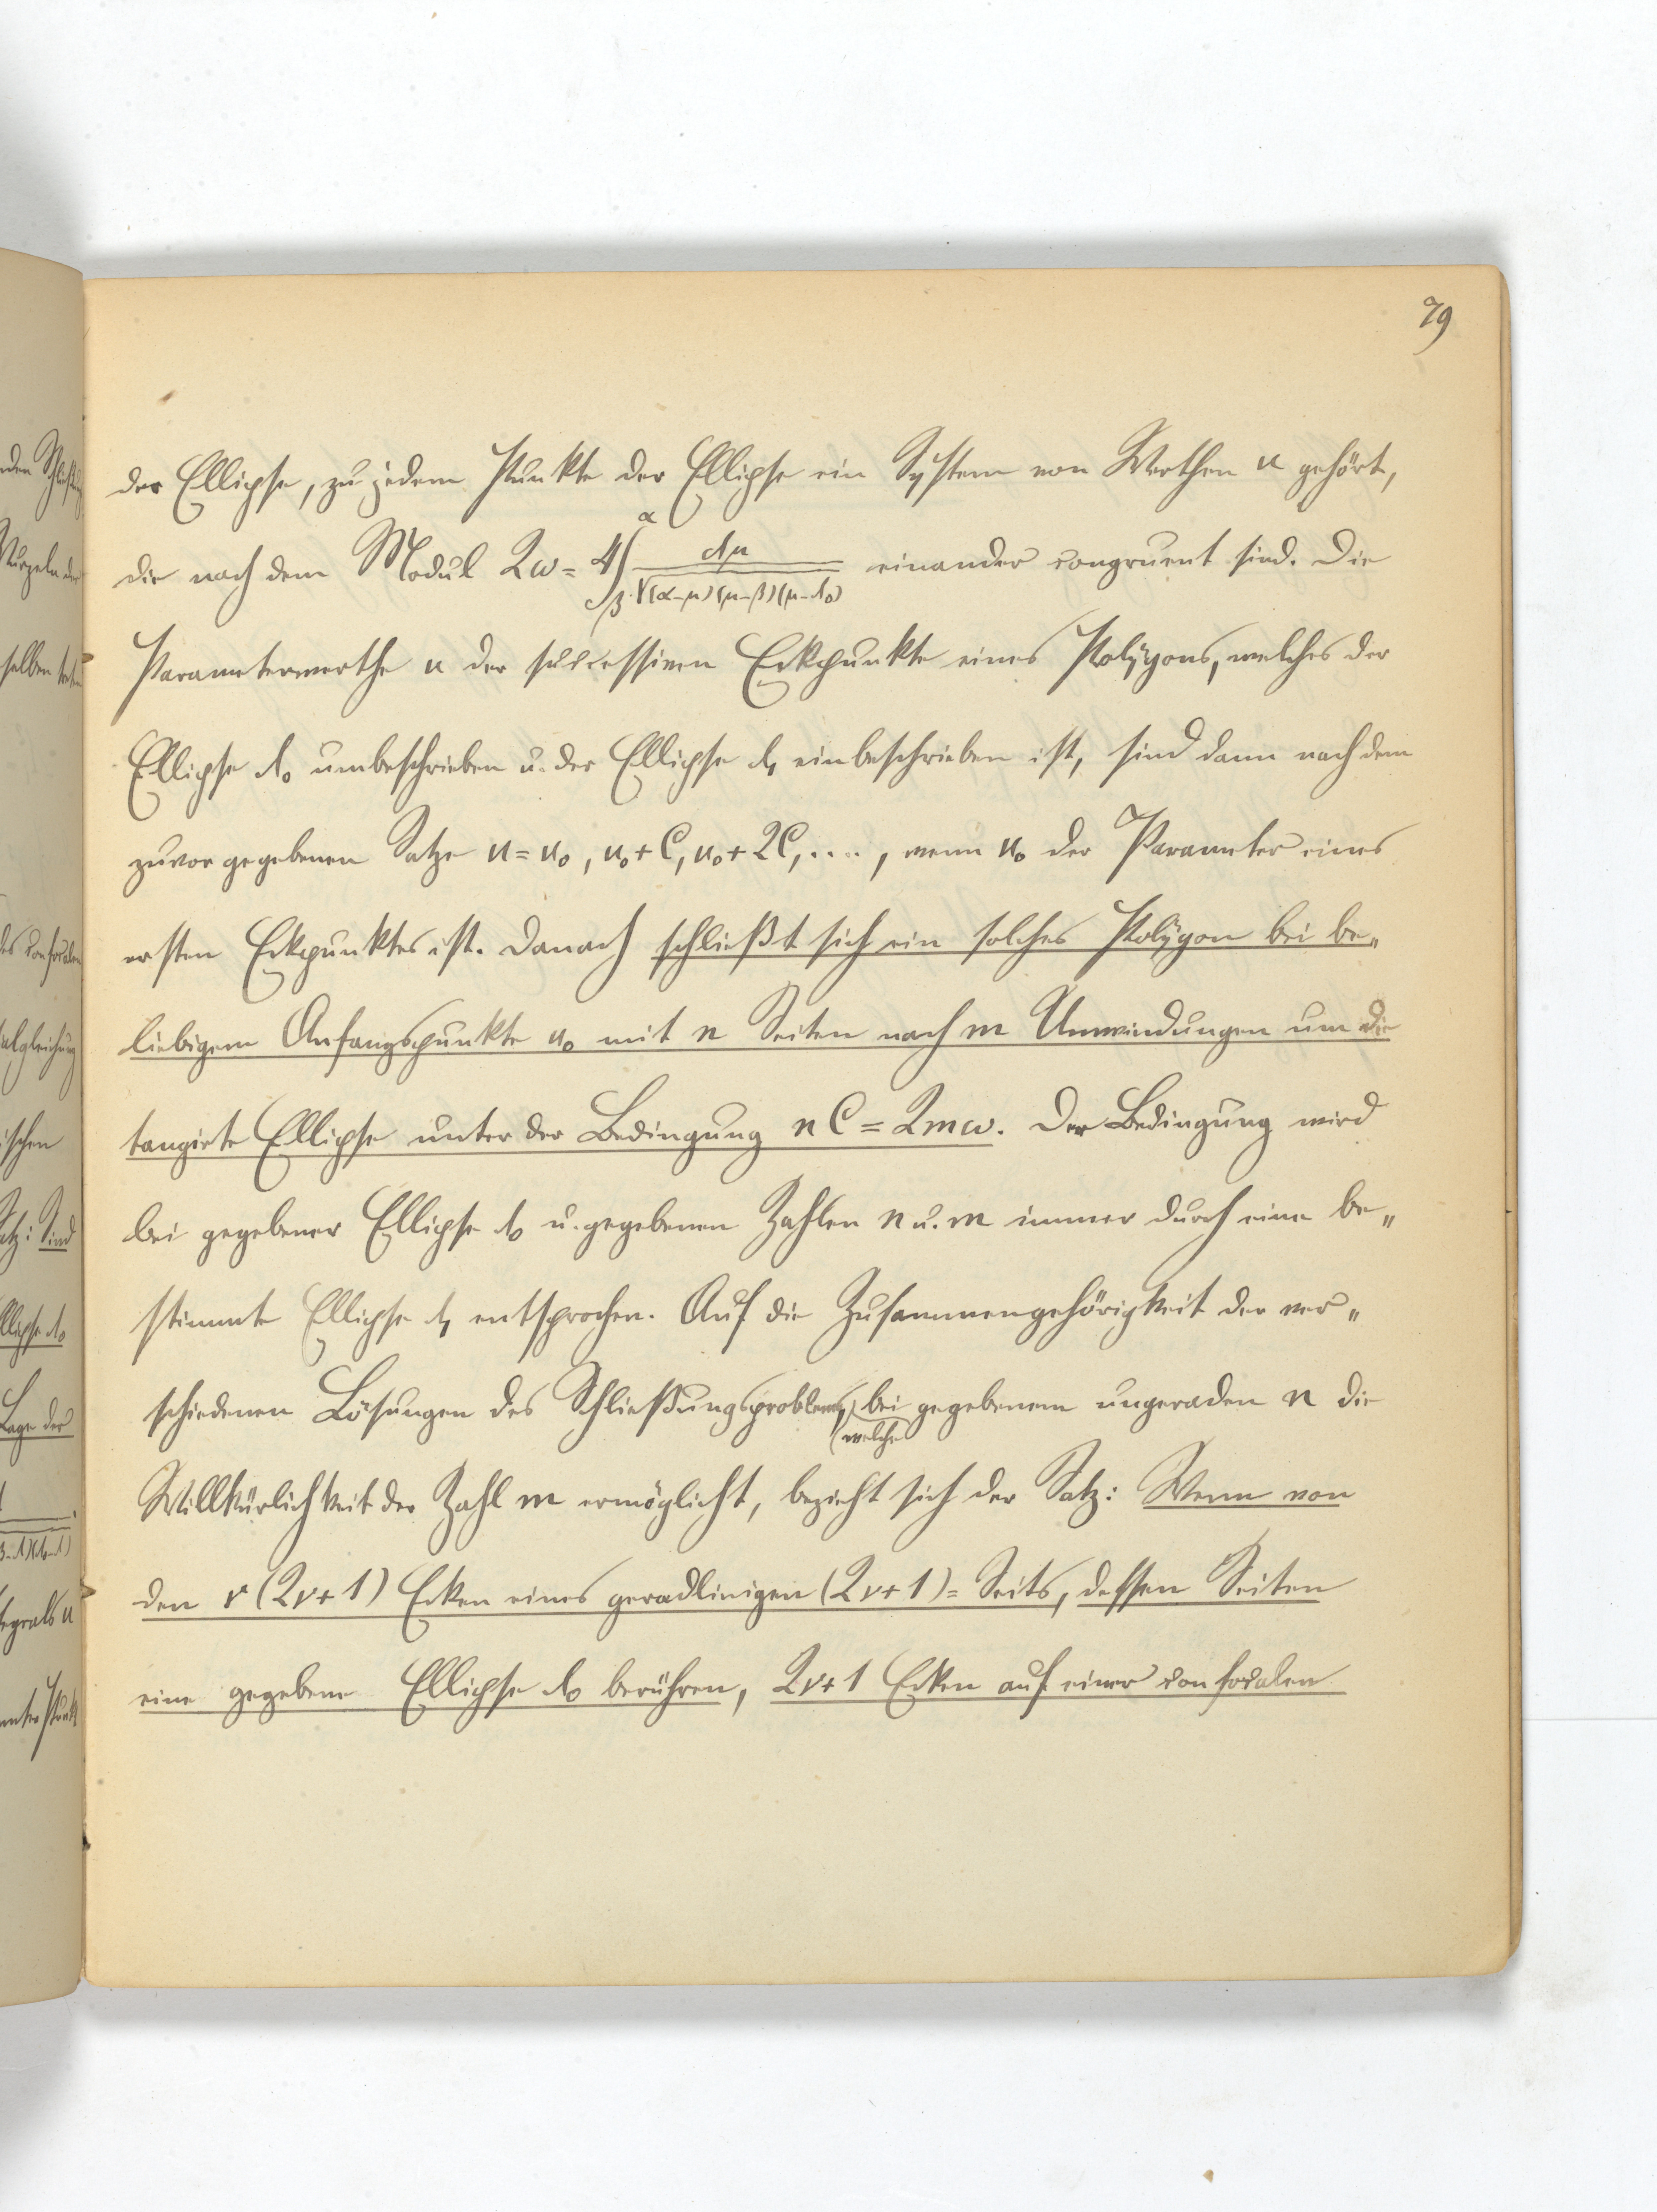 79
der Ellipse, zu jedem Punkte der Ellipse ein System von Werthen u gehört,
die nach dem Modul 2ω = 4∫_β^α dμ / √((α-μ)(μ-β)(μ-λ₀)) einander congruent sind. Die
Parameterwerthe u der successiven Eckpunkte eines Polygons, welches der
Ellipse λ₀ umbeschrieben u. der Ellipse λ₁ einbeschrieben ist, sind dann nach dem
zuvor gegebenen Satze u = u₀, u₀ + C, u₀ + 2C, ...., wenn u₀ der Parameter eines
ersten Eckpunktes ist. Danach schließt sich ein solches Polygon bei be„
liebigem Anfangspunkte u₀ mit n Seiten nach m Umwindungen um die
tangirte Ellipse unter der Bedingung nC = 2mω. Der Bedingung wird
bei gegebener Ellipse λ₀ u. gegebenen Zahlen n u. m immer durch eine be„
stimmte Ellipse λ₁ entsprochen. Auf die Zusammengehörigkeit der ver„
schiedenen Lösungen des Schließungsproblems, bei gegebenem ungeraden n die
welche
Willkürlichkeit der Zahl m ermöglicht, bezieht sich der Satz: Wenn von
den ν(2ν+1) Ecken eines geradlinigen (2ν+1)=Seits, dessen Seiten
eine gegebene Ellipse λ₀ berühren, 2ν+1 Ecken auf einer confocalen